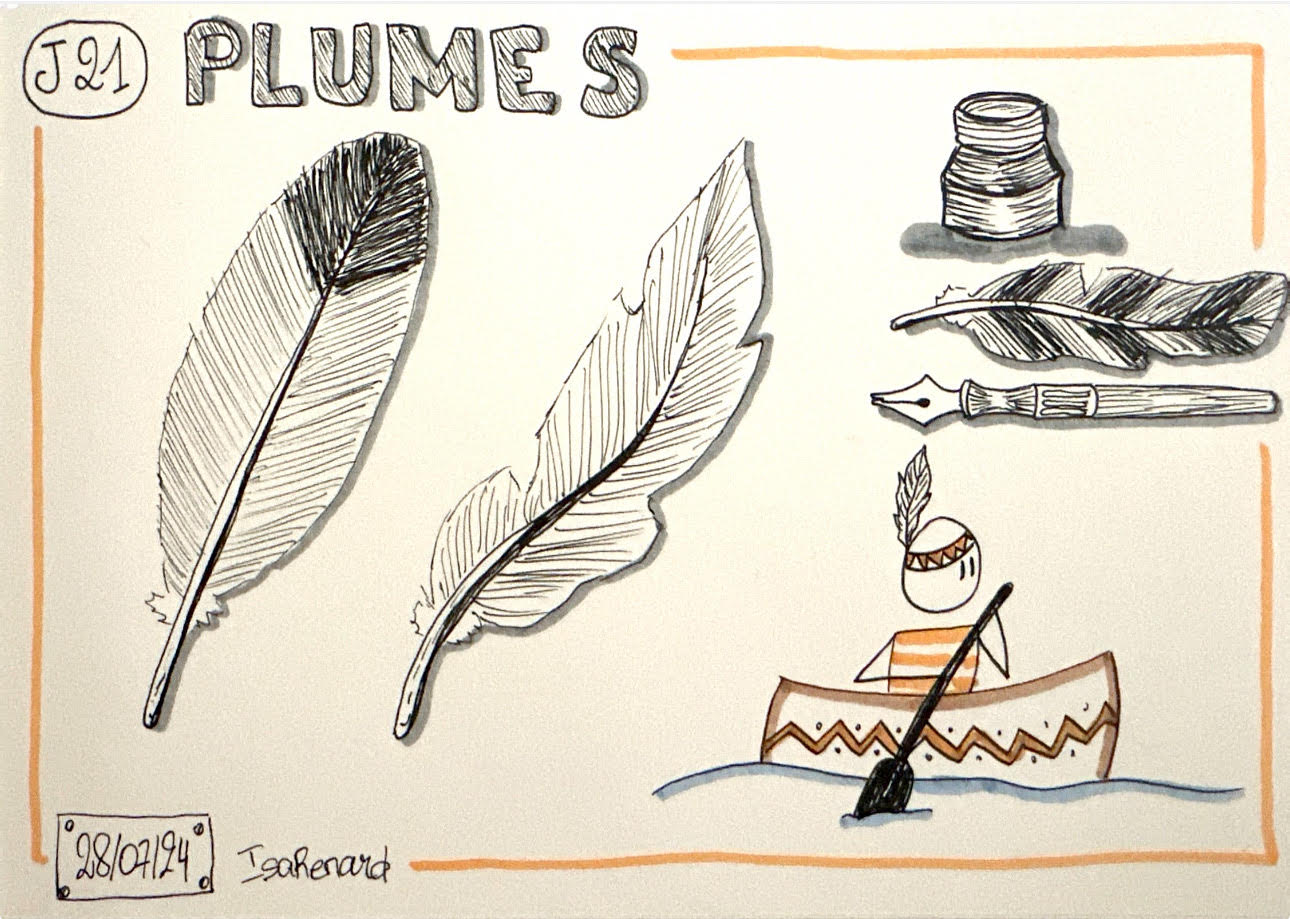 J21 PLUMES
28/07/24 IsaRenard